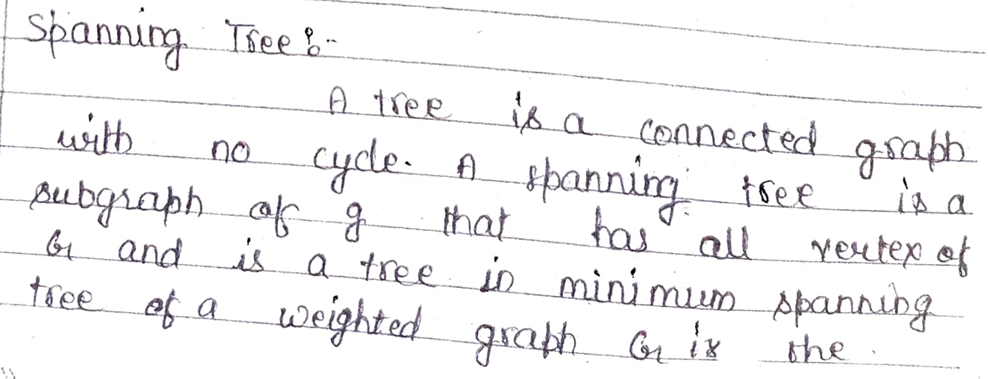 Spanning Tree :-
A tree is a connected graph
with no cycle. A spanning tree is a
subgraph of g that has all vertex of
G and is a tree in minimum spanning
tree of a weighted graph G is the.